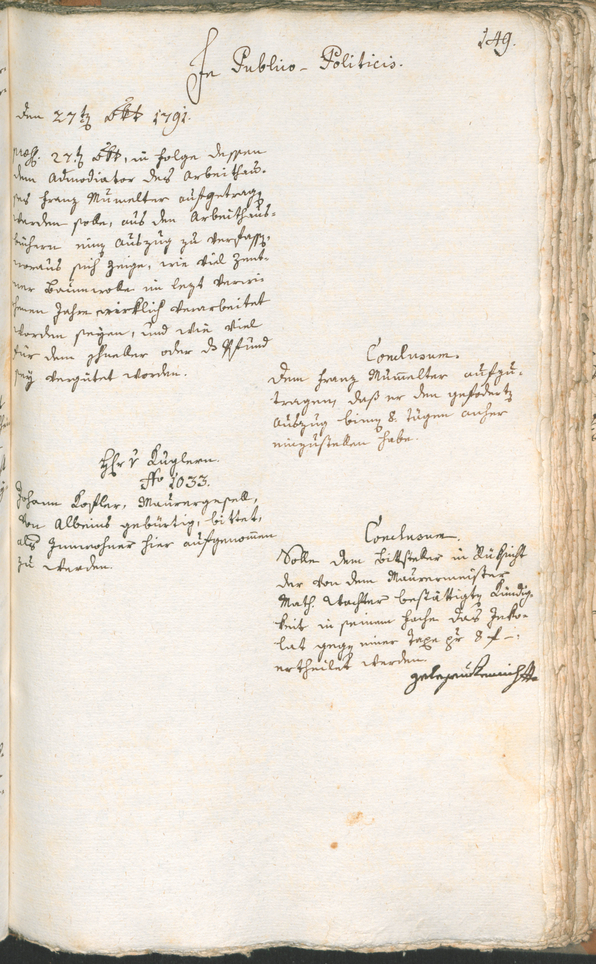 149.
In Publico-Politicis.
den 27t Obt 1791.
praes. 27t Obt, in Folge dessen
dem Admodiator des Arbeithau-
ses Franz Mumelter aufgetrag
werden solle, aus den Arbeitshaus-
büchern einen Auszug zu verfass,
woraus sich zeige, wie viel Zent-
ner Baumwolle im lezt verwi-
chenen Jahre wirklich verarbeitet
worden seyen, und wie viel
für dem Schneller oder das Pfund
sey vergütet worden.
Conclusum.
Dem Franz Mumelter aufzu-
tragen, daß er den gefoderten
Auszug binnen 8. Tägen anher
einzustellen habe.
H. v Kuglern.
No 1033.
Johann Kofler, Maurergesell,
von Albeins gebürtig, bittet,
als Innwohner hier aufgenommen
zu werden.
Conclusum.
Solle dem Bittsteller in Rüksicht
der von dem Maurermeister
Math. Wachter bestättigten Kündig-
keit in seinem Fache das Inko-
lat gegen einer Taxe pr 8 f –
ertheilet werden.